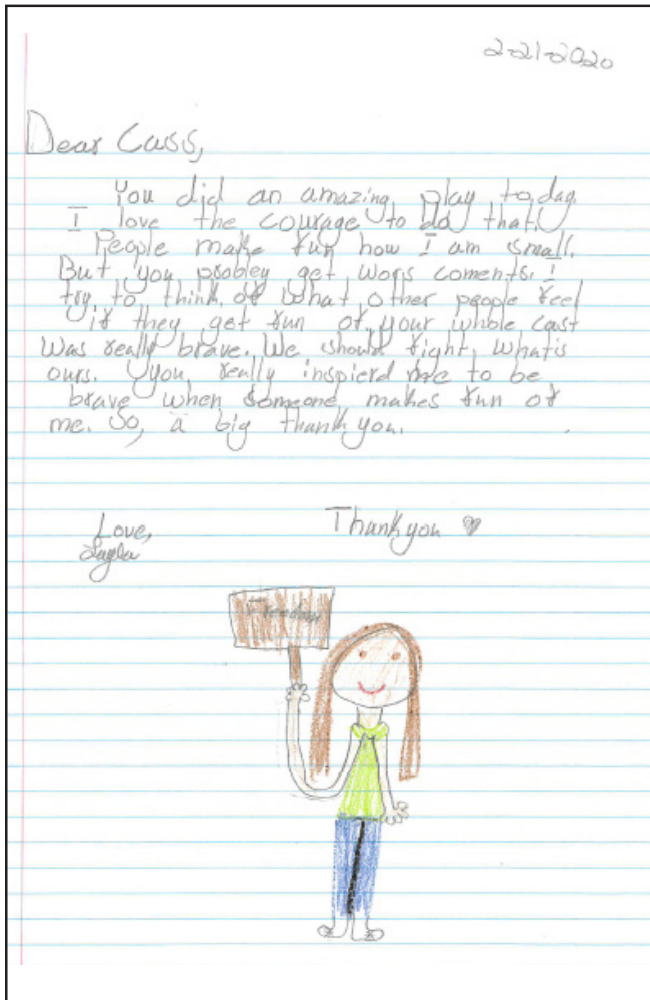 2-21-2020
Dear Cass,
You did an amazing play today.
I love the courage to do that!
People make fun how I am small.
But you probley get wors coments. I
try to think of what other people feel
if they get fun of. your whole cast
was really brave. We should fight what's
ours. you really inspierd me to be
brave when someone makes fun of
me. So, a big thank you.
Love,
Layla
Thank you
Freedom